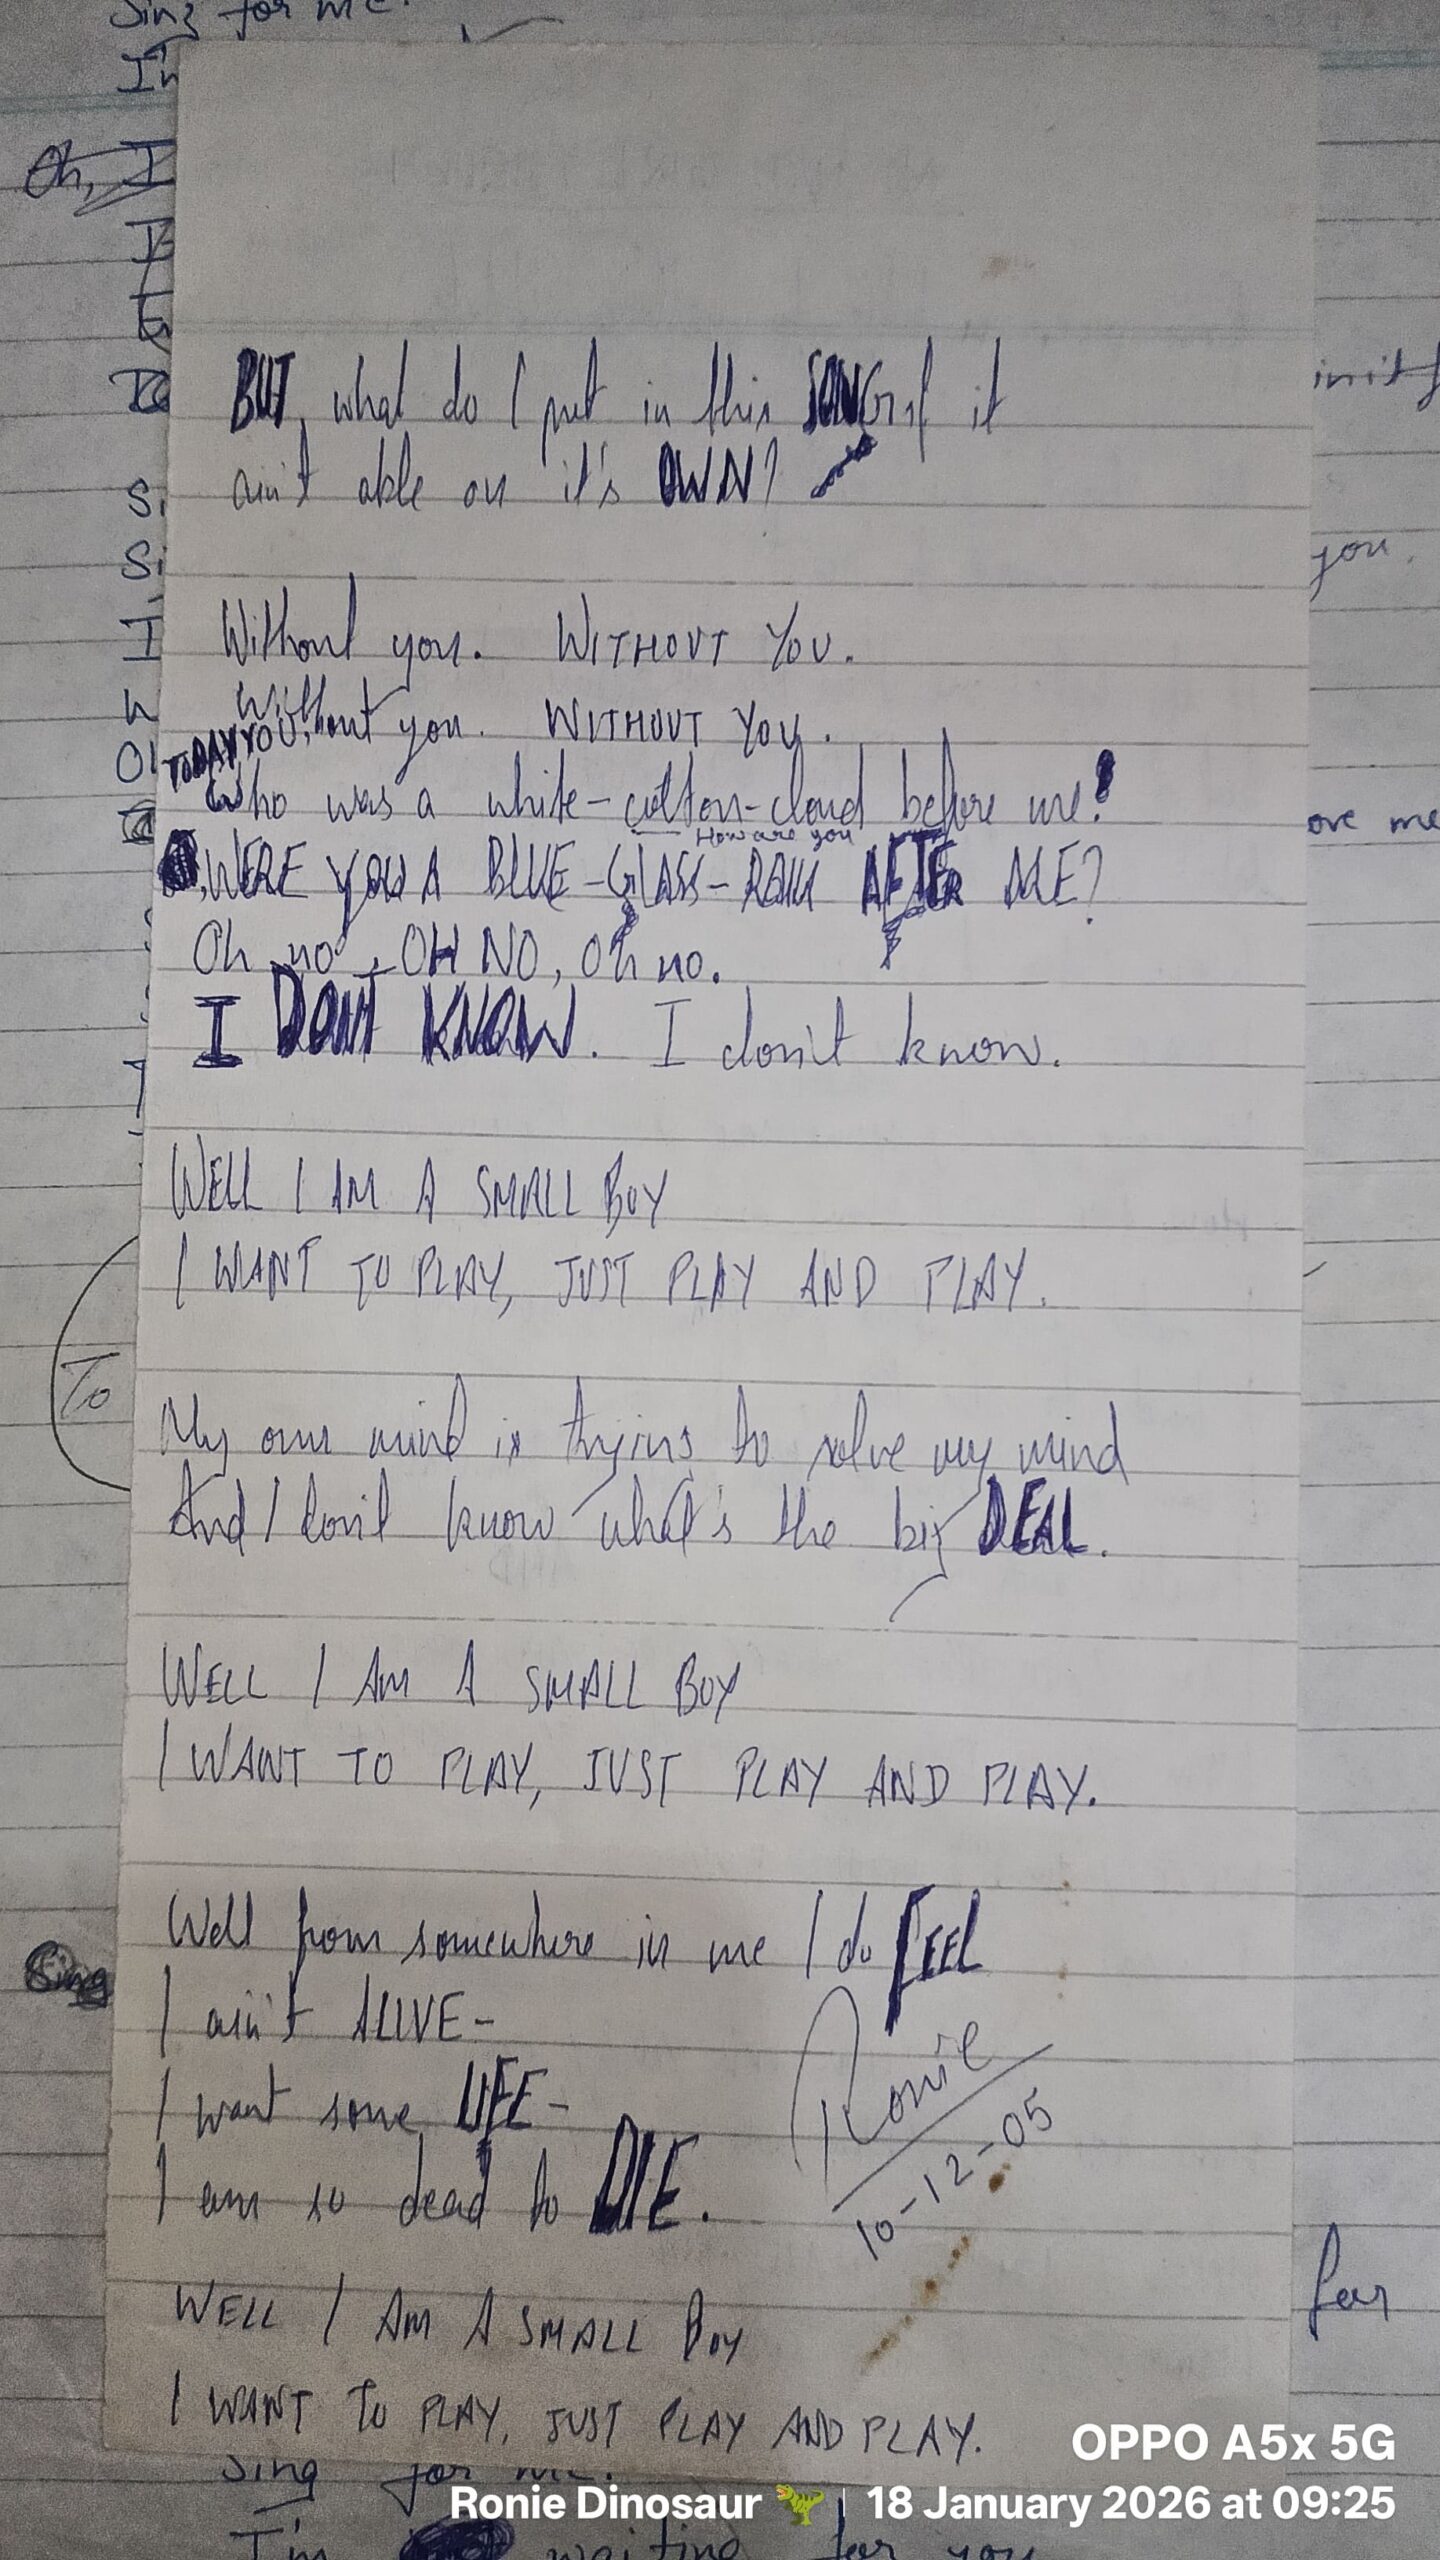 Sing for me.
I'm
Oh, I
BUT, what do I put in this SONG if it
ain't able on it's OWN?
you.
Without you. WITHOUT YOU.
Without you. WITHOUT YOU.
TODAY, YOU,
Who was a white-cotton-cloud before me?
ove me
How are you
WERE YOU A BLUE-GLASS-RAIN AFTER ME?
Oh no, OH NO, Oh no.
I DON'T KNOW. I don't know.
WELL I AM A SMALL BOY
I WANT TO PLAY, JUST PLAY AND PLAY.
To
My own mind is trying to solve my mind
And I don't know what's the big DEAL.
WELL I AM A SMALL BOY
I WANT TO PLAY, JUST PLAY AND PLAY.
Well from somewhere in me I do FEEL
Sing
I ain't ALIVE-
I want some LIFE-
I am so dead to DIE.
Ronie
10-12-05
for
WELL I AM A SMALL BOY
I WANT TO PLAY, JUST PLAY AND PLAY.
OPPO A5x 5G
Sing for me.
Ronie Dinosaur 🦖 | 18 January 2026 at 09:25
I'm waiting for you